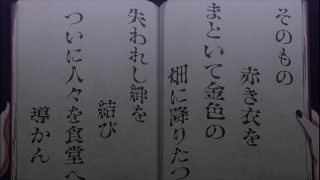 そのもの
赤き衣を
まといて金色の
畑に降りたつ
失われし絆を
結び
ついに人々を食堂へ
導かん